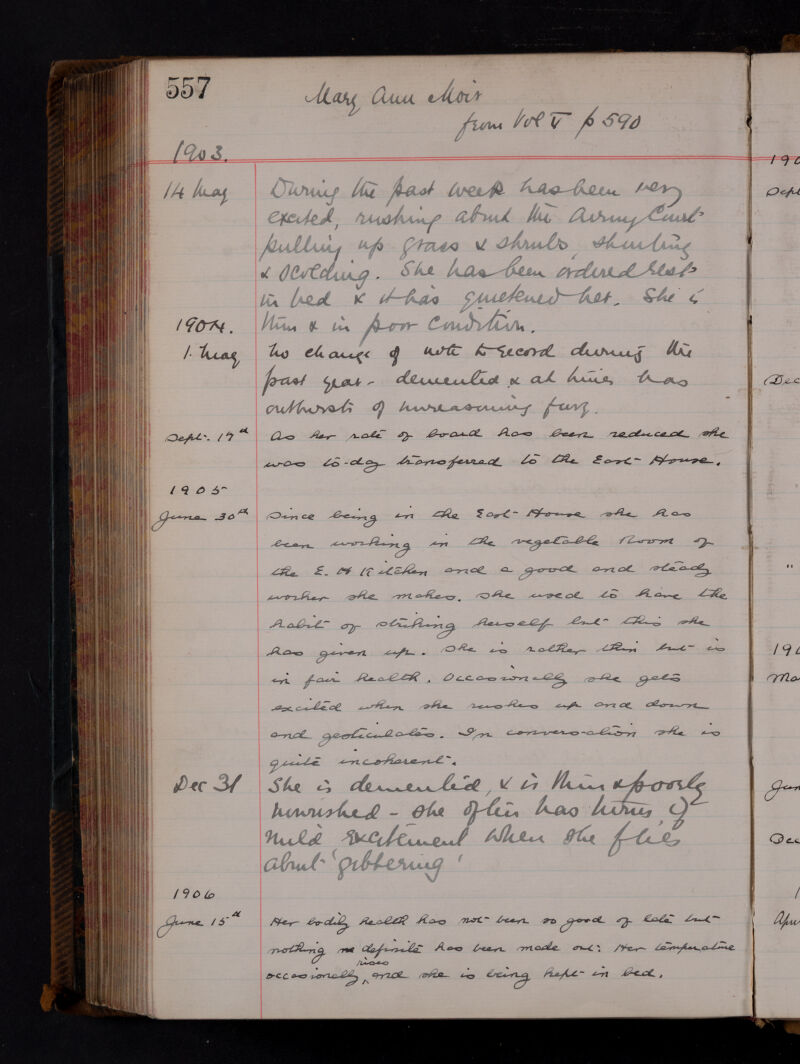 557
Mary Ann Moir
from Vol V p 590
1903.
14 May During the past week has been very
excited, rushing about the Airing Court
pulling up grass & shrubs, shouting
& scolding. She has been ordered rest
in bed & it has quietened her. She is
thin & in poor condition.
1904.
1. May No change of note to record during the
past year - demented & at times has
outbursts of unreasoning fury.
Sept. 17th As her rate of board has been reduced she
was to-day transferred to the East House.
1905
June 30th Since being in the East House she has
been working in the vegetable Room of
the E. H Kitchen and a good and steady
worker she makes. She used to have the
habit of striking herself but this she
has given up. She is rather thin but is
in fair health. Occasionally she gets
excited when she rushes up and down
and gesticulates. In conversation she is
quite incoherent.
Dec 31 She is demented, & is thin & poorly
nourished - She often has turns of
mild excitement when she flies
about 'gibbering'
1906
June 15th Her bodily health has not been so good of late but
nothing definite has been made out: Her temperature
occasionally rises and she is being kept in bed.
190
Sept
(Dec
"
190
Ma
Jun
Dec
1
Apr